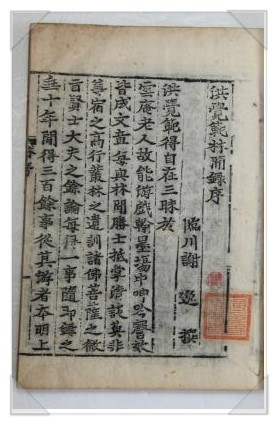 洪覺範林間錄序
臨川謝 逸 撰
洪覺範得自在三昧於
雲庵老人故能游戲翰墨場中呻吟謦欬
皆成文章每與林間勝士抵掌清談莫非
尊宿之高行叢林之遺訓諸佛菩薩之微
旨賢士大夫之餘論每得一事隨即錄之
垂十年間得三百餘事從其游者本明上